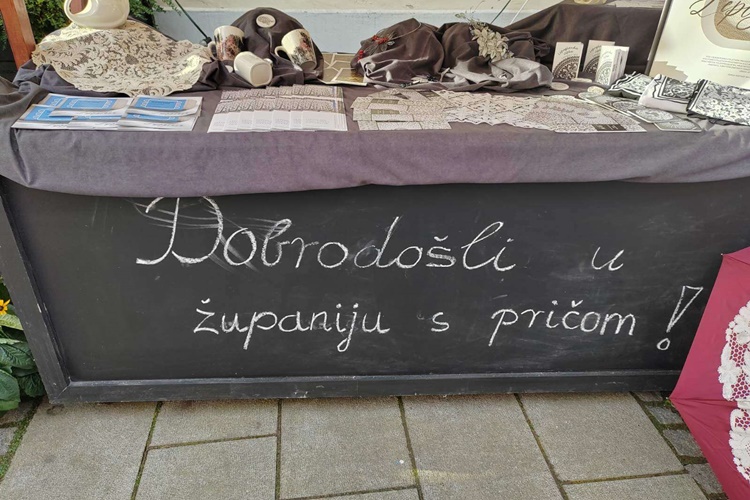 Dobrodošli u
županiju s pričom!